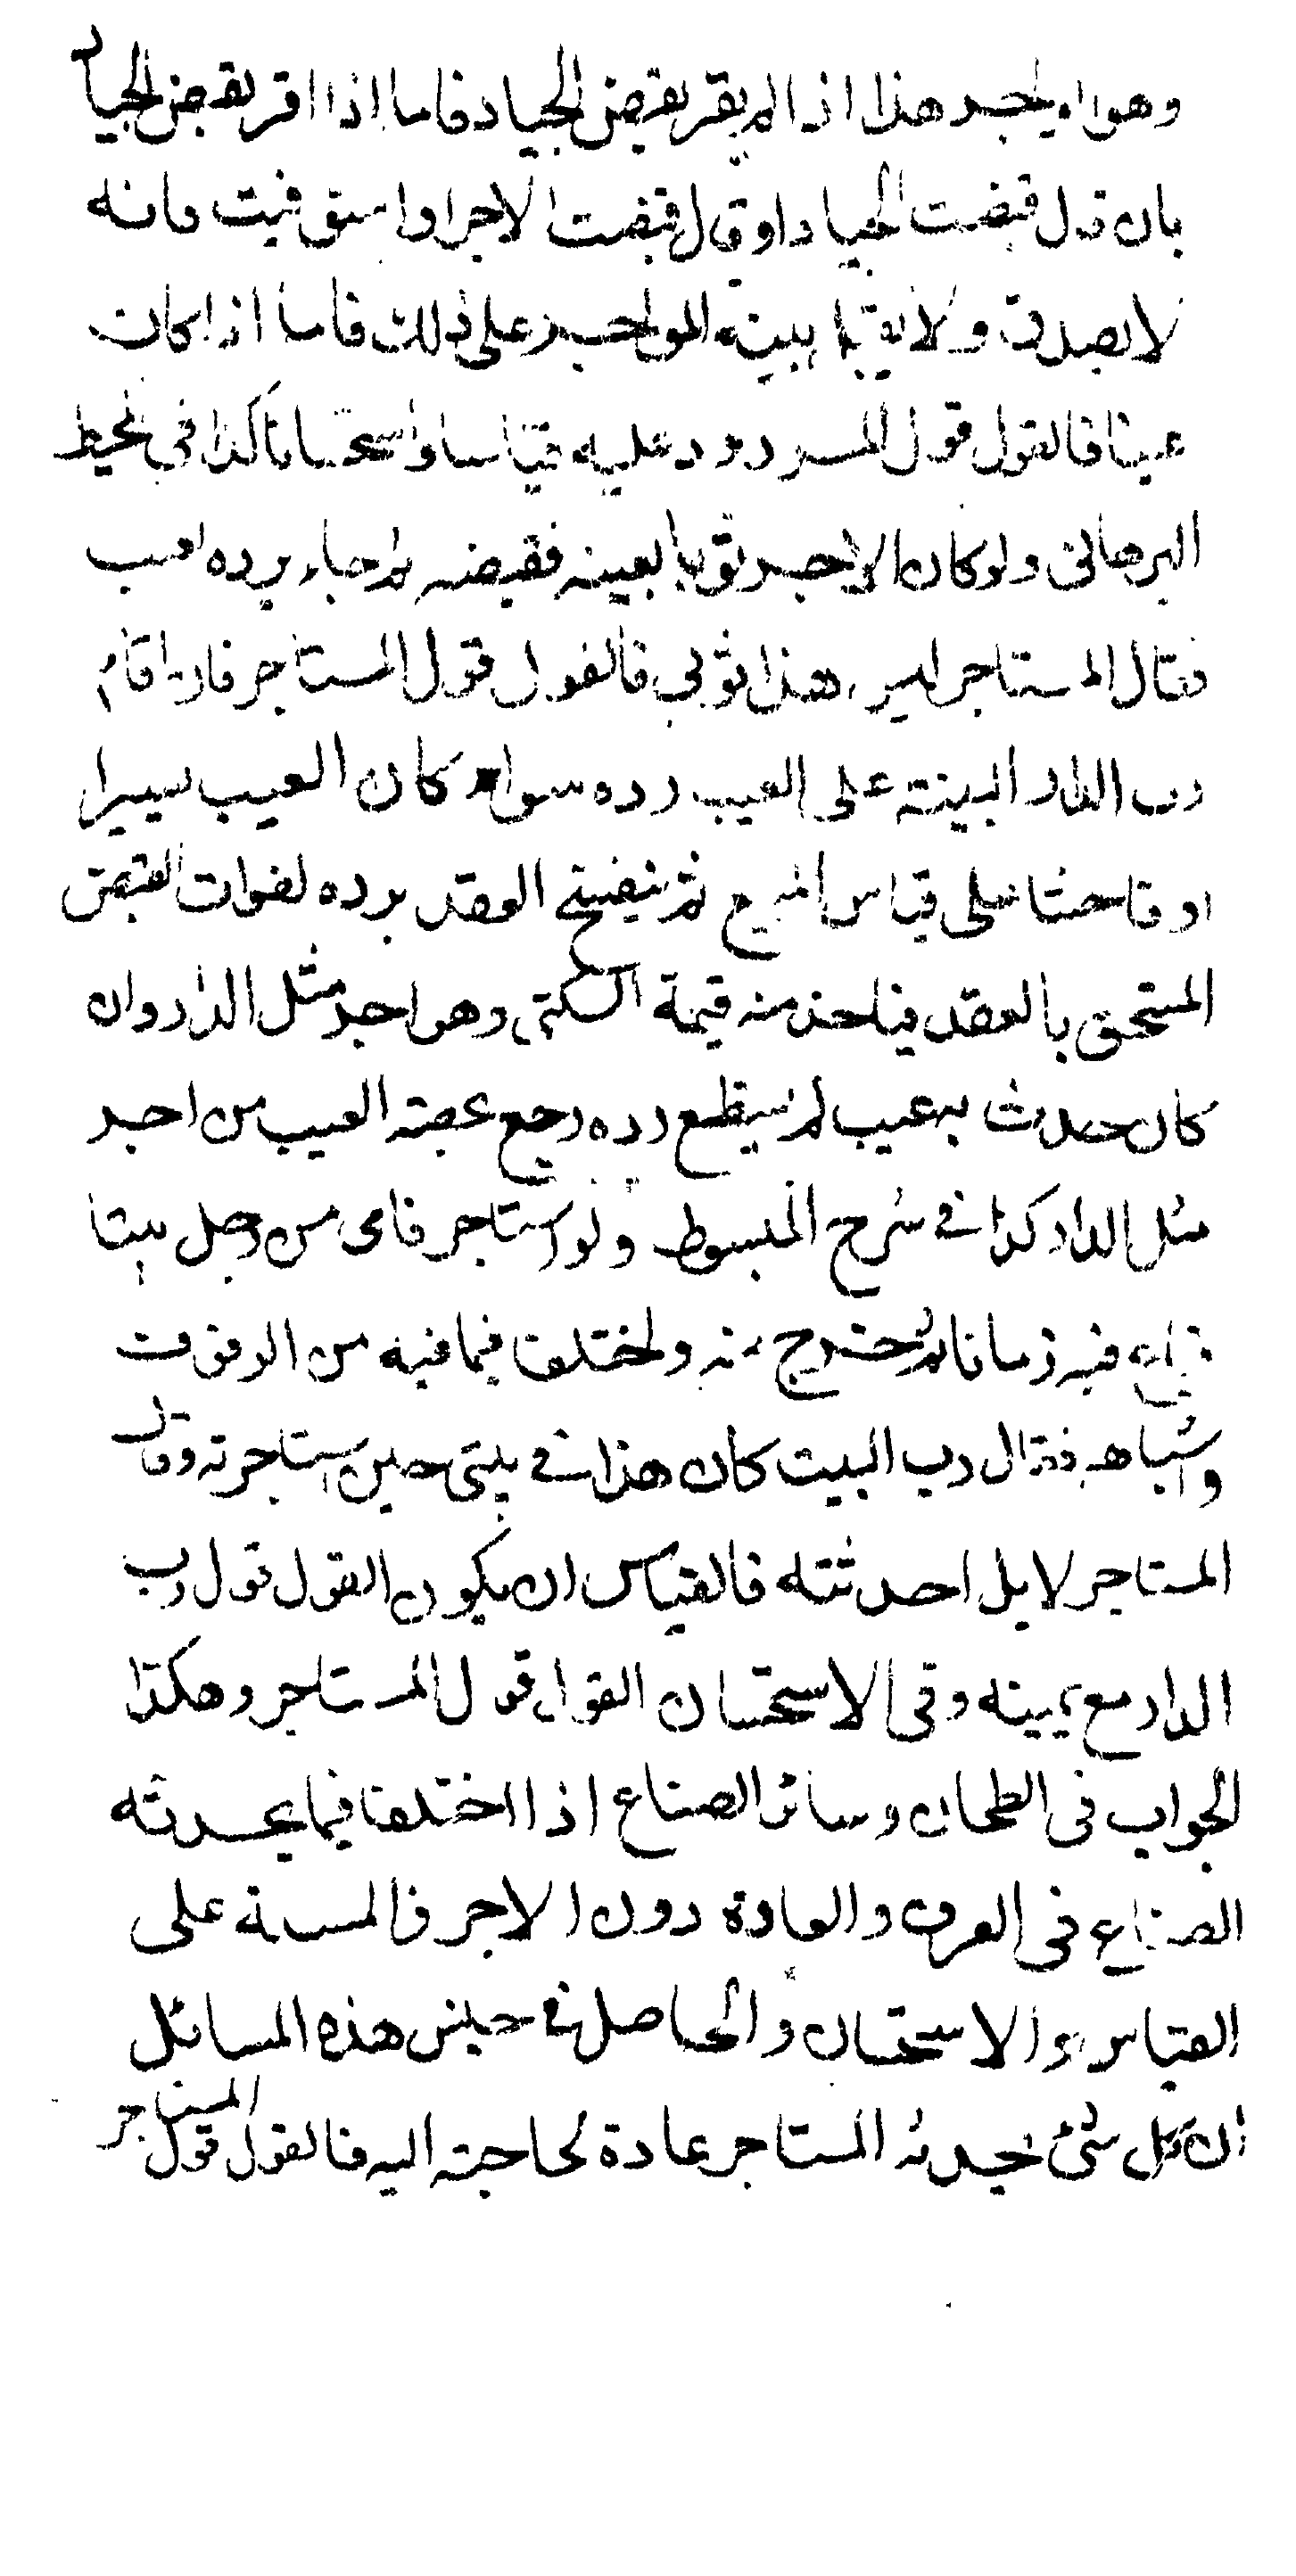 وهو اويلجيد هذا اذا لم يقر بقبض الجياد فاما اذا اقر بقبض الجياد
بان قال قبضت الجياد او قال قبضت الاجر او استوفيت فانه
لا يصدق ولا يقبل بينه المواجر على ذلك فاما اذا كان
عينا فالقول قول المردود عليه قياسا واستحسانا كذا في المحيط
البرهاني ولو كان الاجر ثوبا بعينه فقبضه ثم جاء يرده بعيب
فقال المستاجر ليس هذا ثوبي فالقول قول المستاجر فان اقام
رب الدار البينة على العيب رده سواء كان العيب يسيرا
او فاحشا على قياس المبيع ثم ينفسخ العقد برده لفوات القبض
المستحق بالعقد فياخذ منه قيمة السكنى وهو اجر مثل الدار وان
كان حدث به عيب لم يستطع رده رجع بحصته العيب من اجر
مثل الدار كذا في شرح المبسوط ولو استاجر فامى من رجل بيتا
فباع فيه زمانا ثم خرج منه ولختلفا فيما فيه من الرفوف
واشباهه فقال رب البيت كان هذا في بيتي حين استاجرته وقال
المستاجر لا بل احدثته فالقياس ان يكون القول قول رب
الدار مع يمينه وفي الاستحسان القول قول المستاجر وهكذا
الجواب في الطحان وسائر الصناع اذا اختلفا فيما يحدثه
الصناع في العرف والعادة دون الاجر فالمسئلة على
القياس والاستحسان والحاصل في جنس هذه المسائل
ان كل شئ يحدثه المستاجر عادة لحاجته اليه فالقول قول المستاجر